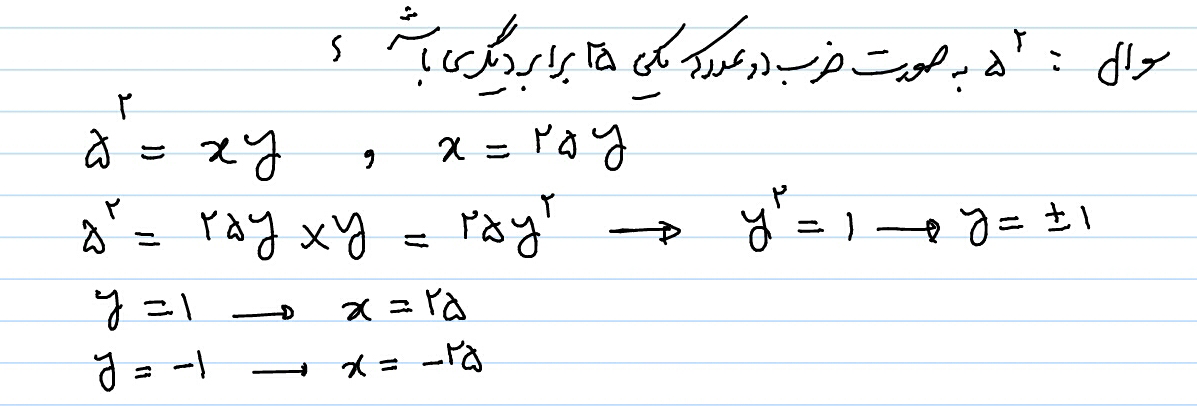 سوال : ۵^۲ به صورت ضرب دو عدد که یکی ۲۵ برابر دیگری باشد ؟
۵^۲ = xy , x = ۲۵y
۵^۲ = ۲۵y × y = ۲۵y^۲ → y^۲ = ۱ → y = ±۱
y = ۱ → x = ۲۵
y = -۱ → x = -۲۵